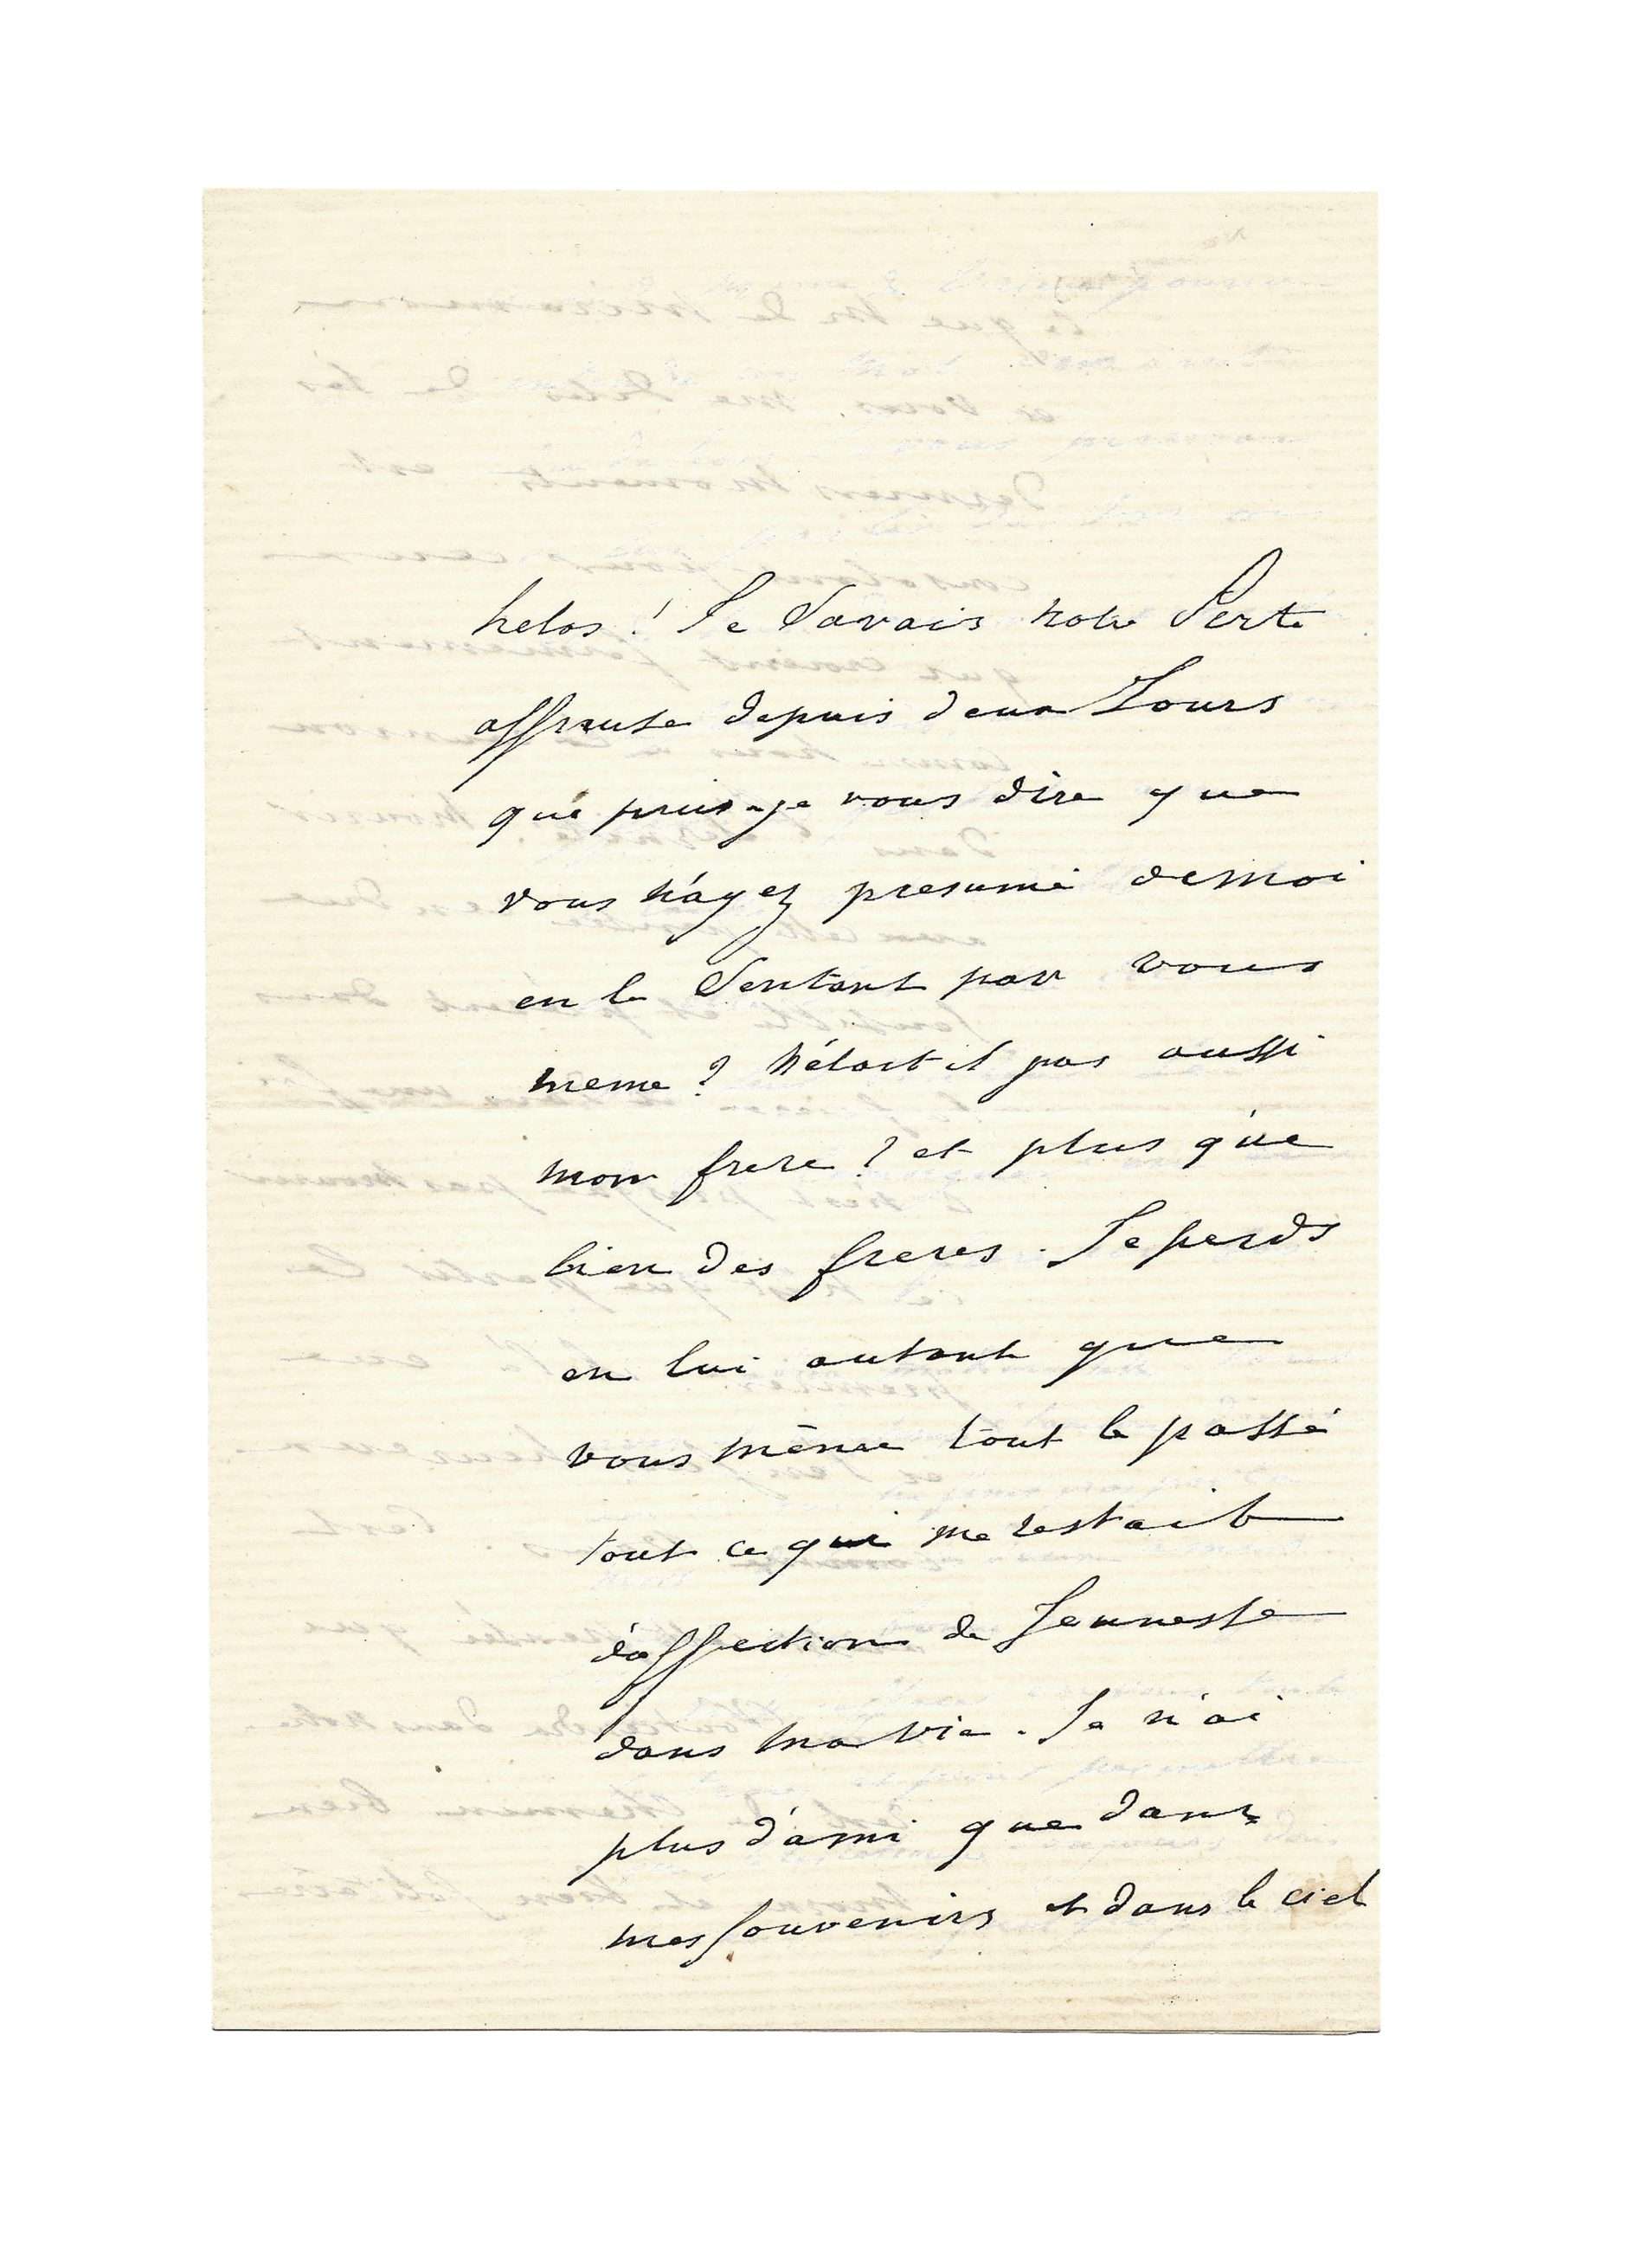 helas ! Je Savais notre Perte
affreuse depuis deux Jours
que puis-je vous dire que
vous n'ayez presumé de moi
en le Sentant par vous
meme ? n'étoit il pas aussi
mon frere ? et plus que
bien des freres . Je perds
en lui autant que
vous même tout le passé
tout ce qui me restait
d'affection de Jeunesse
dans ma vie . Je n'ai
plus d'ami que dans
mes souvenirs et dans le ciel